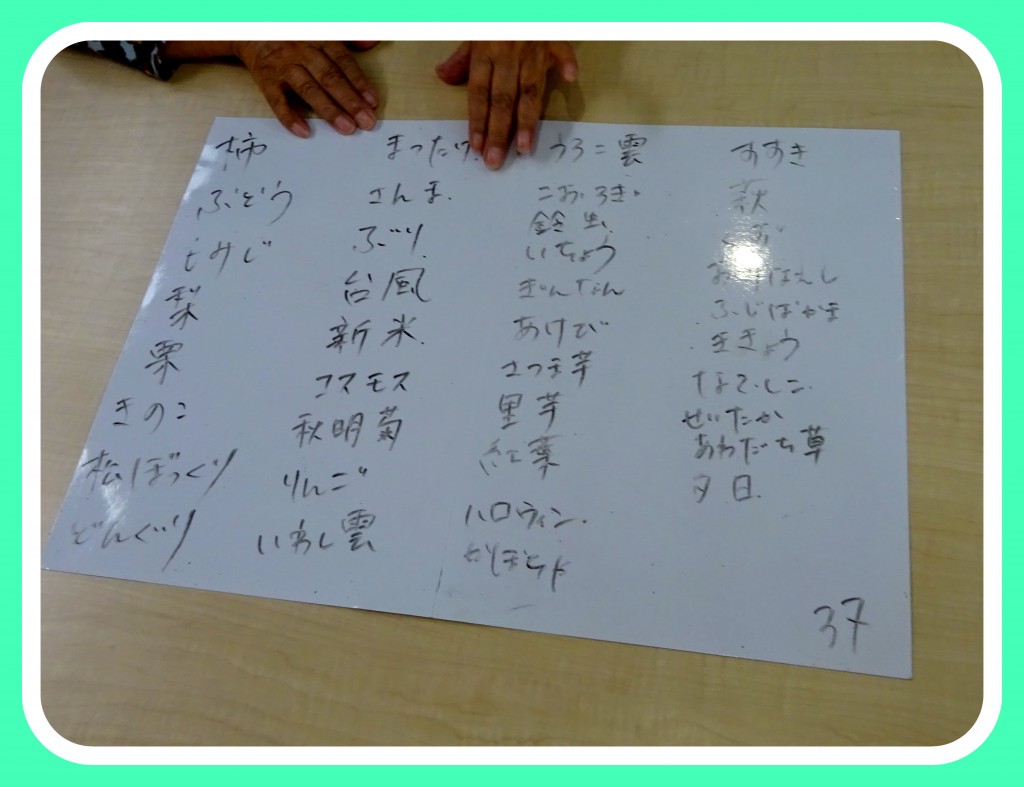 柿
ぶどう
もみじ
梨
栗
きのこ
松ぼっくり
どんぐり
まつたけ
さんま
ぶり
台風
新米
コスモス
秋明菊
りんご
いわし雲
うろこ雲
こおろぎ
鈴虫
いちょう
ぎんなん
あけび
さつま芋
里芋
紅葉
ハロウィン
かぼちゃ
すすき
萩
おみなえし
ふじばかま
ききょう
なでしこ
せいたか
あわだち草
夕日
37